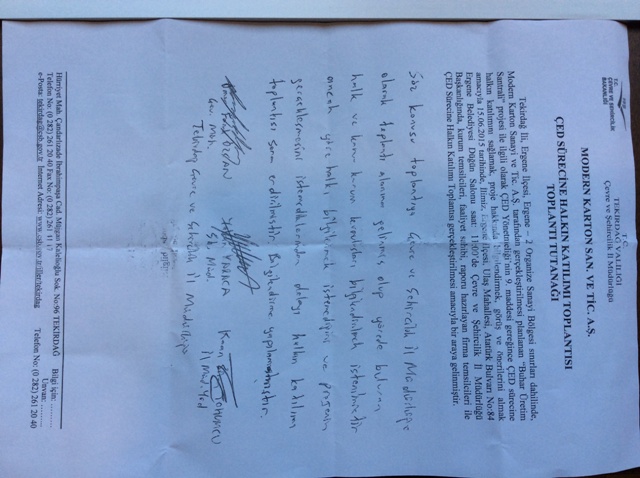 T.C.
TEKİRDAĞ VALİLİĞİ
Çevre ve Şehircilik İl Müdürlüğü
ÇEVRE VE ŞEHİRCİLİK
BAKANLIĞI
MODERN KARTON SAN. VE TİC. A.Ş.
ÇED SÜRECİNE HALKIN KATILIMI TOPLANTISI
TOPLANTI TUTANAĞI
Tekirdağ İli, Ergene İlçesi, Ergene – 2 Organize Sanayi Bölgesi sınırları dahilinde,
Modern Karton Sanayi ve Tic. A.Ş. tarafından gerçekleştirilmesi planlanan “Buhar Üretim
Santrali” projesi ile ilgili olarak ÇED Yönetmeliği'nin 9. maddesi gereğince ÇED sürecine
halkın katılımını sağlamak, proje hakkında bilgilendirmek, görüş ve önerilerini almak
amacıyla 15.06.2015 tarihinde, İlimiz Ergene İlçesi, Ulaş Mahallesi, Atatürk Bulvarı No:84
Ergene Belediyesi Düğün Salonu saat: 11:00'de Çevre ve Şehircilik İl Müdürlüğü
Başkanlığında, kurum temsilcileri faaliyet sahibi, raporu hazırlayan firma temsilcileri ile
ÇED Sürecine Halkın Katılımı Toplantısı gerçekleştirilmesi amacıyla bir araya gelinmiştir.
Söz konusu toplantıya Çevre ve Şehircilik İl Müdürlüğü
olarak toplantı alanına gelinmiş olup yörede bulunan
halk ve kamu kurum kuruluşları bilgilendirilmek istenilmiştir
ancak yöre halkı bilgilenmek istemediğini ve projenin
gerçekleşmesini istemediklerinden dolayı halkın katılımı
toplantısı sona erdirilmiştir. Bilgilendirme yapılamamıştır.
Çev. Müh.
Şb. Müd.
İl Müd. Yrd
Tekirdağ Çevre ve Şehircilik İl Müdürlüğü
Hürriyet Mah. Çundarlızade İbrahimpaşa Cad. Müjgan Kalelioğlu Sok. No:96 TEKİRDAĞ
Bilgi için: .........
Telefon No: (0 282) 261 20 40 Fax No: (0 282) 261 11 17
Unvan: .........
e-Posta: tekirdag@csb.gov.tr İnternet Adresi: www.csb.gov.tr/iller/tekirdag
Telefon No: (0 282) 261 20 40